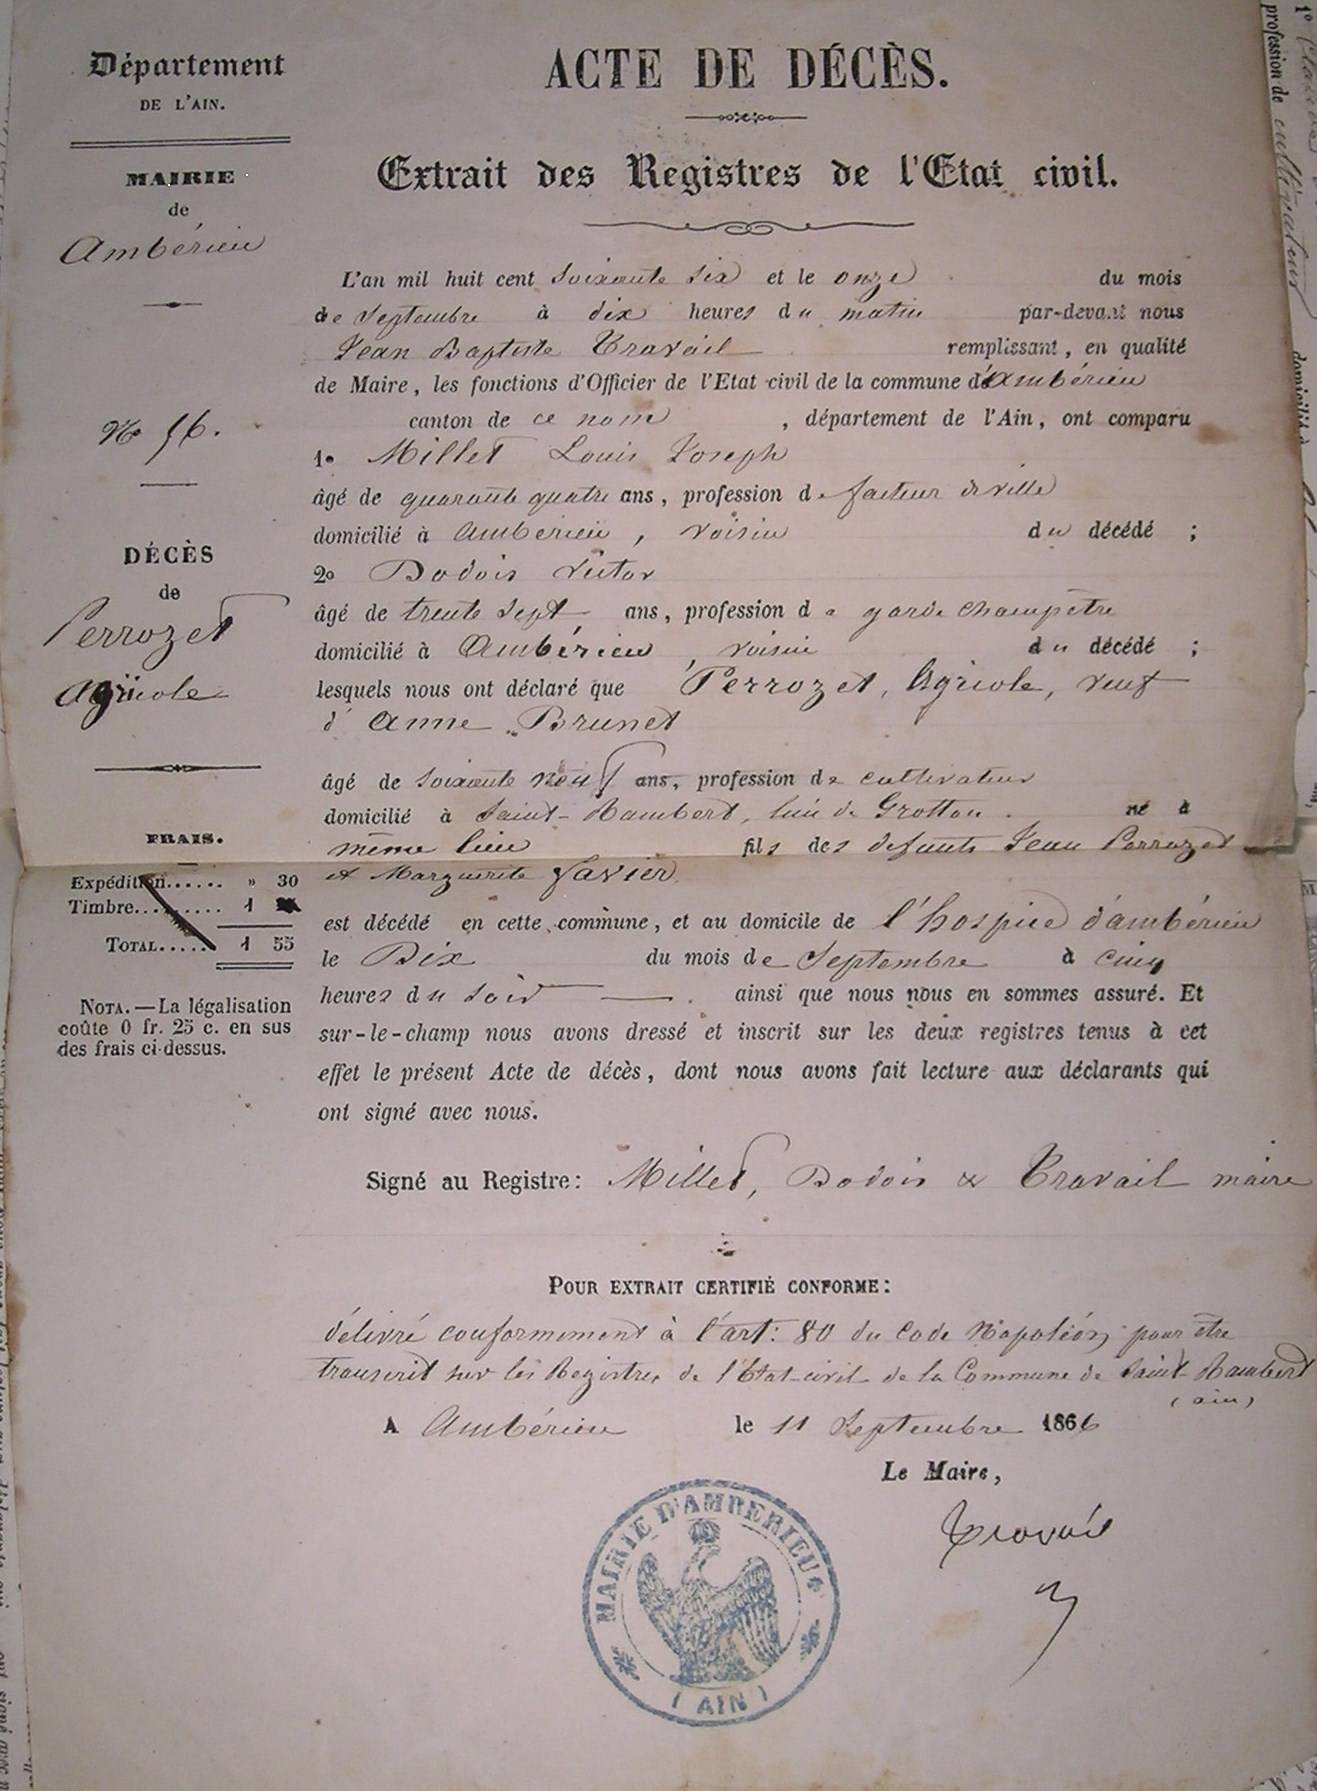 Département
DE L'AIN.
MAIRIE
de
Ambérieu
No 56.
DÉCÈS
de
Perrozet
Agricole
FRAIS.
Expédition...... » 30
Timbre......... 1
TOTAL..... 1 55
NOTA. — La légalisation
coûte 0 fr. 25 c. en sus
des frais ci-dessus.
ACTE DE DÉCÈS.
Extrait des Registres de l'Etat civil.
L'an mil huit cent soixante six et le onze du mois
de Septembre à dix heures du matin par-devant nous
Jean Baptiste Travail remplissant, en qualité
de Maire, les fonctions d'Officier de l'Etat civil de la commune d'Ambérieu
canton de ce nom, département de l'Ain, ont comparu
1o Millet Louis Joseph
âgé de quarante quatre ans, profession de facteur de ville
domicilié à Ambérieu, voisin du décédé ;
2o Dodois Victor
âgé de trente sept ans, profession de garde champêtre
domicilié à Ambérieu, voisin du décédé ;
lesquels nous ont déclaré que Perrozet, Agricole, veuf
d'Anne Brunet
âgé de soixante neuf ans, profession de cultivateur
domicilié à Saint-Rambert, lieu de Grattou né à
même lieu fils des défunts Jean Perrozet
et Marguerite Favier
est décédé en cette commune, et au domicile de l'hospice d'ambérieu
le Dix du mois de Septembre à cinq
heures du soir ainsi que nous nous en sommes assuré. Et
sur-le-champ nous avons dressé et inscrit sur les deux registres tenus à cet
effet le présent Acte de décès, dont nous avons fait lecture aux déclarants qui
ont signé avec nous.
Signé au Registre: Millet, Dodois & Travail maire
POUR EXTRAIT CERTIFIÉ CONFORME:
délivré conformément à l'art: 80 du Code Napoléon, pour être
transcrit sur les Registres de l'Etat-civil de la Commune de Saint-Rambert
(ain)
A Ambérieu le 11 Septembre 1866
Le Maire,
Travail
MAIRIE D'AMBERIEU
(AIN)
profession de cultivateur
domicilié à